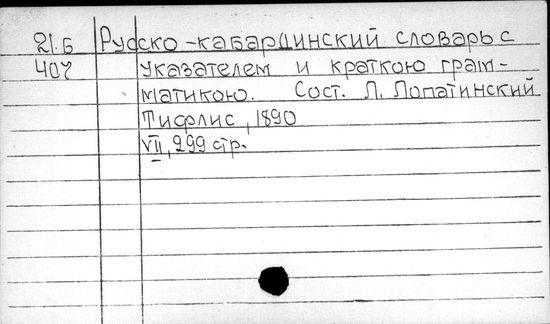 21.Б Русско-кабардинский словарь с
407 указателем и краткою грам-
матикою. Сост. Л. Лопатинский
Тифлис, 1890
VII, 299 стр.